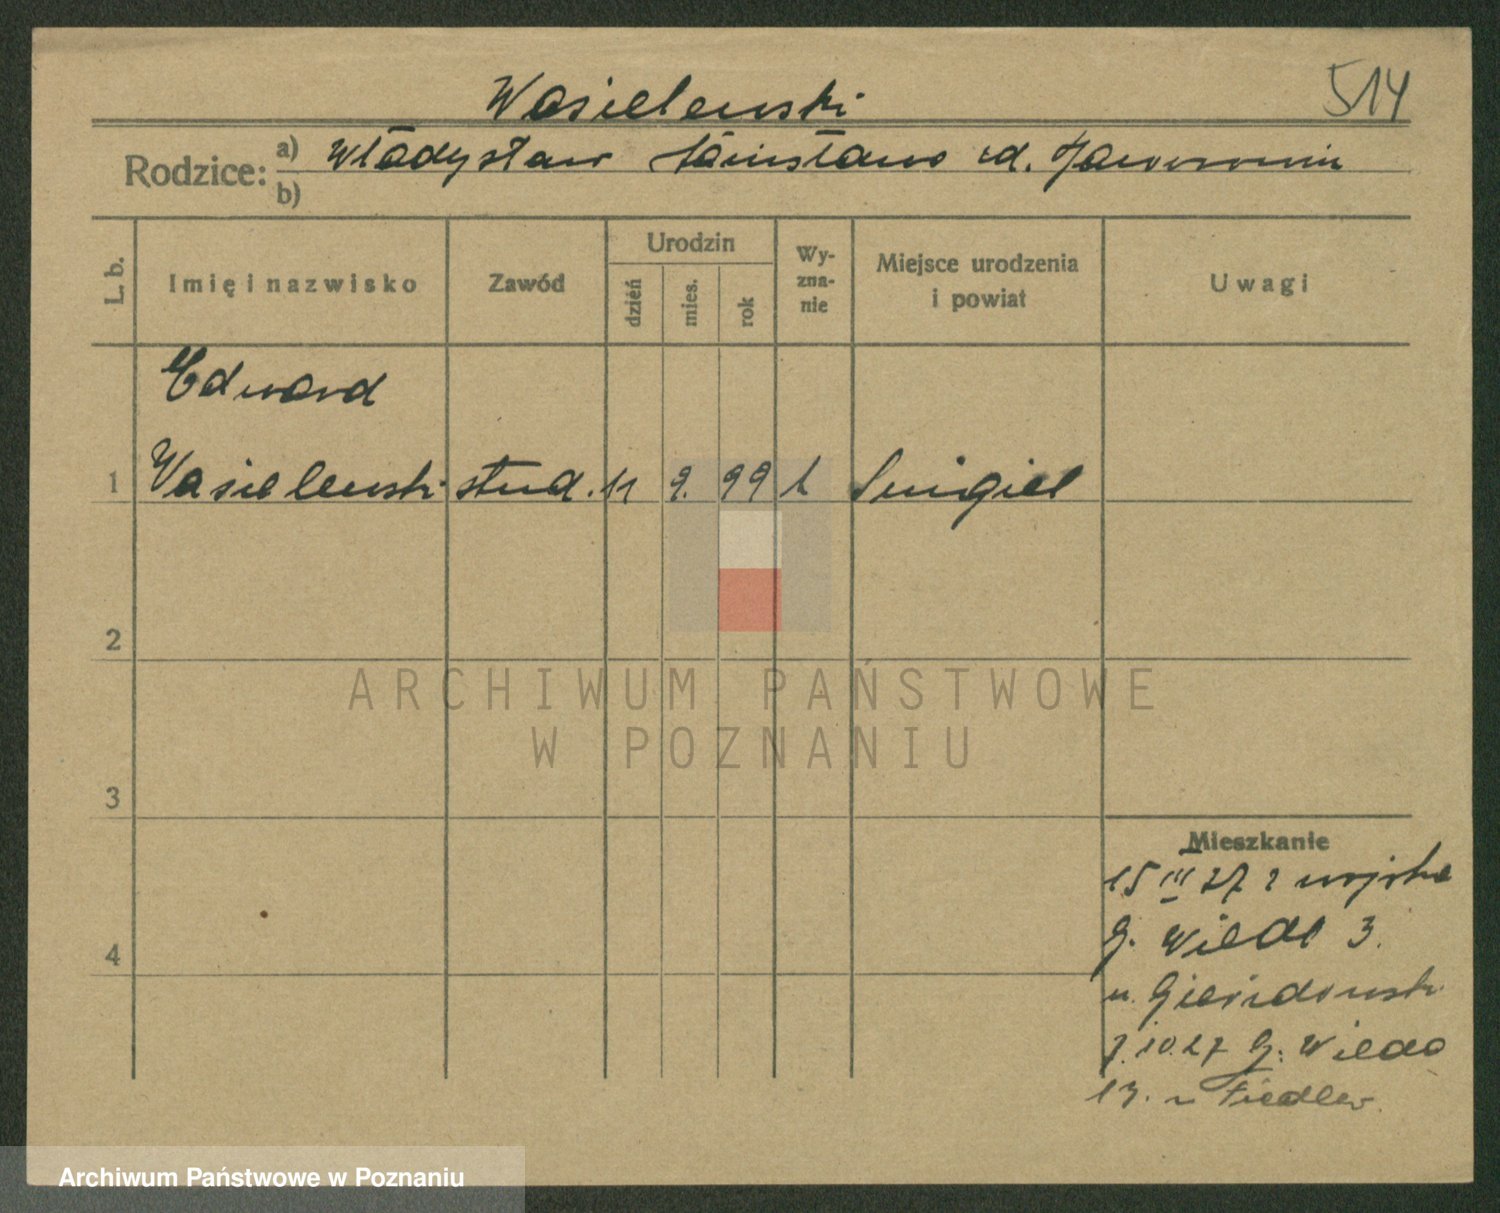 514
Wasielewski
Rodzice: a) Władysław Stanisława zd. Jaworowicz
b)
L. b. Imię i nazwisko Zawód Urodzin dzień mies. rok Wyznanie Miejsce urodzenia i powiat Uwagi
Edward
1 Wasielewski stud. 11 9. 99 k Śmigiel
2
3
4
Mieszkanie
15 III 27 z wojska
G. Wilda 3.
u.
7.10.27 G. Wilda
13. u Fiedler
ARCHIWUM PAŃSTWOWE
W POZNANIU
Archiwum Państwowe w Poznaniu